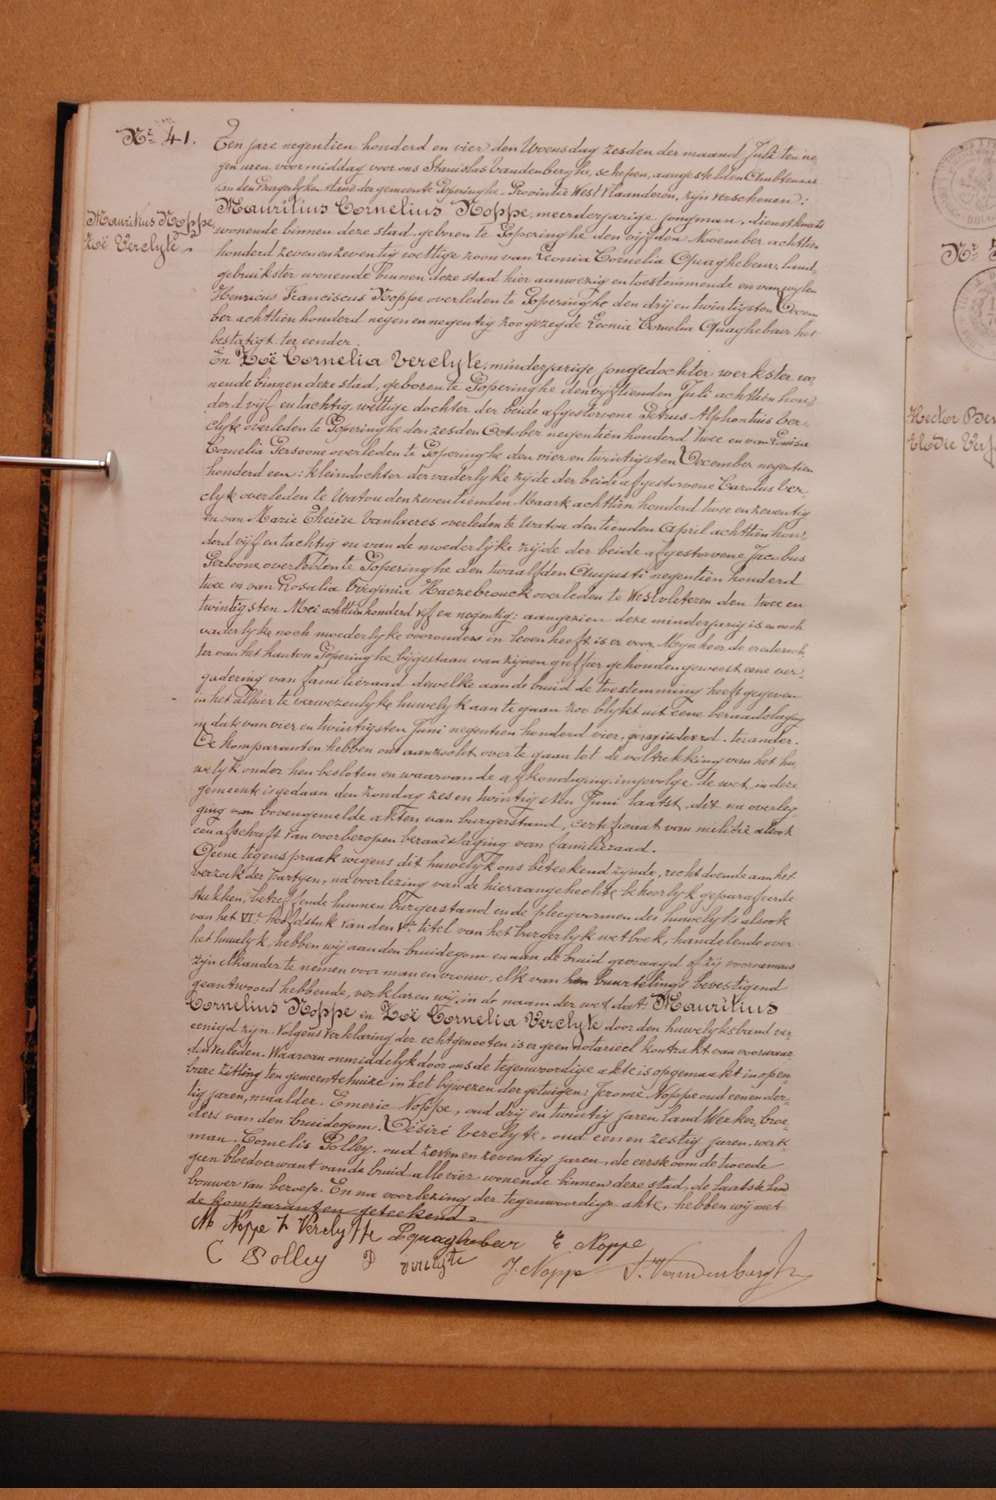 Nr 41.
Mauritius Noppe
Zoë Verclyte
Ten jare negentien honderd en vier den Woensdag zesden der maand Juli ten ne
gen uren voormiddag voor ons Stanislas Vandenberghe, schepen, aangestelden Ambtenaar
van den Burgerlyken stand der gemeente Poperinghe, Provintie West Vlaanderen, zijn verschenen:
Mauritius Cornelius Noppe, meerderjarige jongman, dienstknecht
wonende binnen deze stad geboren te Poperinghe den vijfden November achttien
honderd zeven en zeventig wettige zoon van Leonia Cornelia Quaghebeur, land-
gebruikster wonende binnen deze stad hier aanwezig en toestemmende en van wylen
Henricus Franciscus Noppe overleden te Poperinghe den drij en twintigsten Decem
ber achttien honderd negen en negentig zoo gezegde Leonia Cornelia Quaghebeur het
bestatigt ter eender.
En Zoë Cornelia Verclyte, minderjarige jongedochter werkster wo-
nende binnen deze stad, geboren te Poperinghe den vyftienden Juli achttien hon-
derd vijf en tachtig, wettige dochter der beide afgestorvene Petrus Alphonsius Ver-
clyte overleden te Poperinghe den zesden October negentien honderd twee en van Louisia
Cornelia Persoone overleden te Poperinghe den vier en twintigsten December negentien
honderd een: kleindochter der vaderlyke zyde der beide afgestorvene Carolus Ver
clyte overleden te Watou den zeventienden Maart achttien honderd twee en zeventig
en van Marie Therese Vanlaeres overleden te Watou den tienden April achttien hon-
derd vijf en tachtig en van de moederlyke zijde der beide afgestorvene Jacobus
Persoone overleden te Poperinghe den twaalfden Augusti negentien honderd
twee en van Rosalia Virginia Haezebrouck overleden te Westvleteren den twee en
twintigsten Mei achttien honderd vijf en negentig: aangezien deze minderjarig is en noch
vaderlyke noch moederlyke voorouders in leven heeft is er voor Mynheer de vrederech-
ter van het kanton Poperinghe, bijgestaan van zijnen griffier gehouden geweest eene ver-
gadering van familieraad dewelke aan de bruid de toestemming heeft gegeven
in het alhier te verwezenlyke huwelyk aan te gaan zoo blijkt uit eene beraadslaging
in date van vier en twintigsten Juni negentien honderd vier, geregistreerd. ter ander.
De komparanten hebben ons aanzocht over te gaan tot de voltrekking van het hu
welyk onder hen besloten en waarvan de afkondiging, ingevolge de wet, in deze
gemeente is gedaan den zondag zes en twintigsten Juni laatst, dit na overleg-
ging van bovengemelde akten van burgerstand, certificaat van militie alsook
een afschrift van voorberopen beraadslaging van familieraad.
Geene tegenspraak wegens dit huwelyk ons beteekend zynde, recht doende aan het
verzoek der partyen, na voorlezing van de hieraangehechte behoorlyk geparafeerde
stukken, betreffende hunnen Burgerstand en de pleegvormen des huwelyks alsook
van het VIe hoofdstuk van den Ve titel van het burgerlyk wetboek, handelende over
het huwelyk, hebben wij aan den bruidegom en aan de bruid gevraagd of zij voornemens
zyn elkander te nemen voor man en vrouw, elk van hen beurtelings bevestigend
geantwoord hebbende, verklaren wij, in de naam der wet dat Mauritius
Cornelius Noppe en Zoë Cornelia Verclyte door den huwelyksband ver
eenigd zyn. Volgens verklaring der echtgenooten is er geen notarieel kontrakt van voorwaar-
den verleden. Waarvan onmiddelyk door ons de tegenwoordige akte is opgemaakt in open-
bare zitting ten gemeentehuize in het bijwezen der getuigen: Jerome Noppe oud een en der-
tig jaren, maalder. Emeric Noppe, oud drij en twintig jaren land Werker, broe-
ders van den bruidegom. Désiré Verclyte, oud een en zestig jaren, werk
man. Cornelis Bolley, oud zeven en zeventig jaren, de eerste oom de tweede
geen bloedverwant van de bruid alle vier wonende binnen deze stad, de laatste lan
bouwer van beroep. En na voorlezing der tegenwoordige akte, hebben wij met
de komparanten geteekend.
M Noppe Z Verclytte LQuaghebeur E Noppe
C Bolley D Verclyte J. Noppe S. Vandenberghe
Nr
Hector Der
Elodie Ver